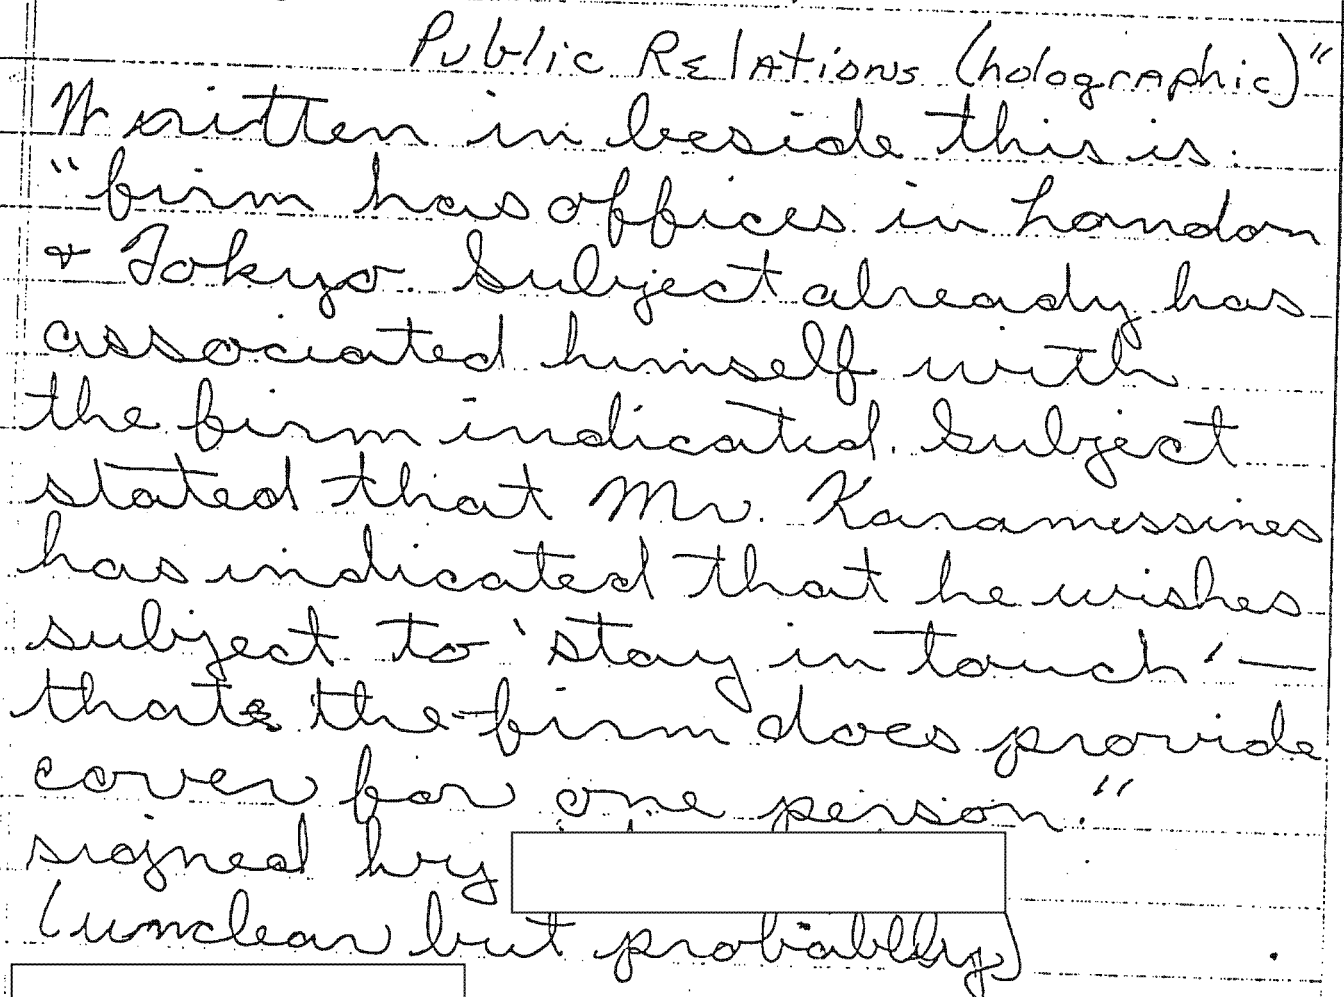 Public Relations (holographic)"
Written in beside this is:
"firm has offices in London
& Tokyo. Subject already has
associated himself with
the firm indicated. Subject
stated that Mr. Karamessines
has indicated that he wishes
subject to 'stay in touch' —
that the firm does provide
cover for one person."
signed by
(unclear but probably)